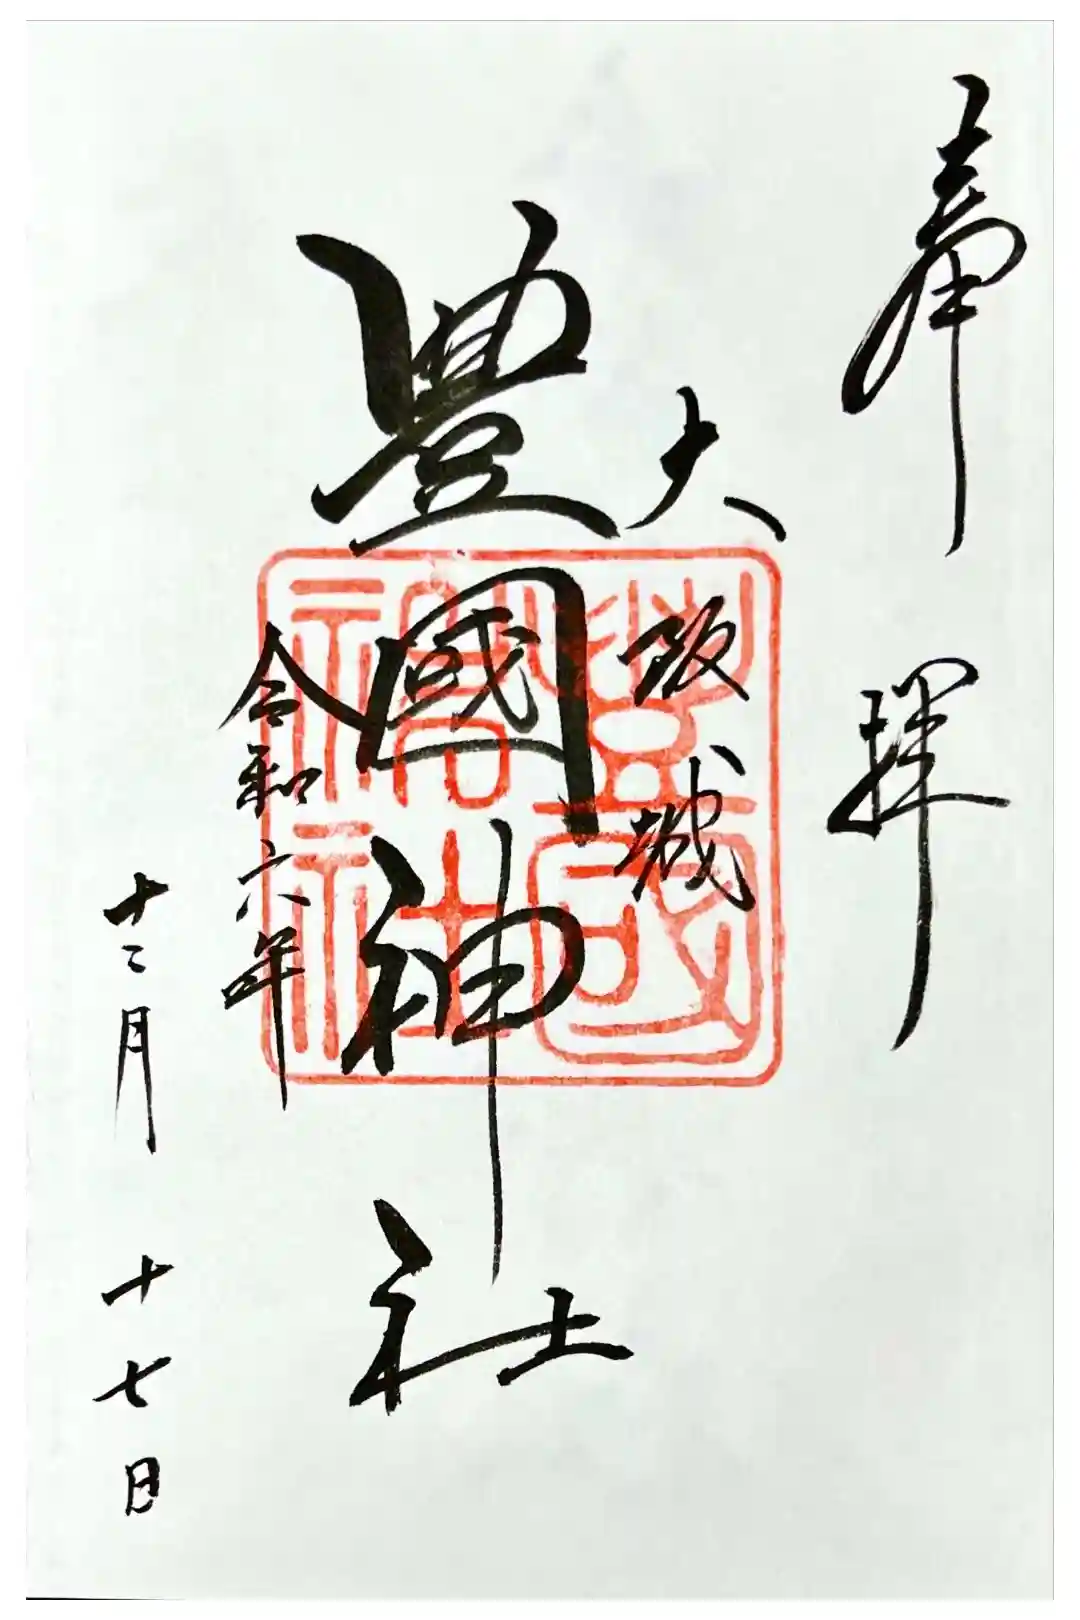 奉拝
大阪城
豊國神社
令和六年
十二月十七日
豊國神社